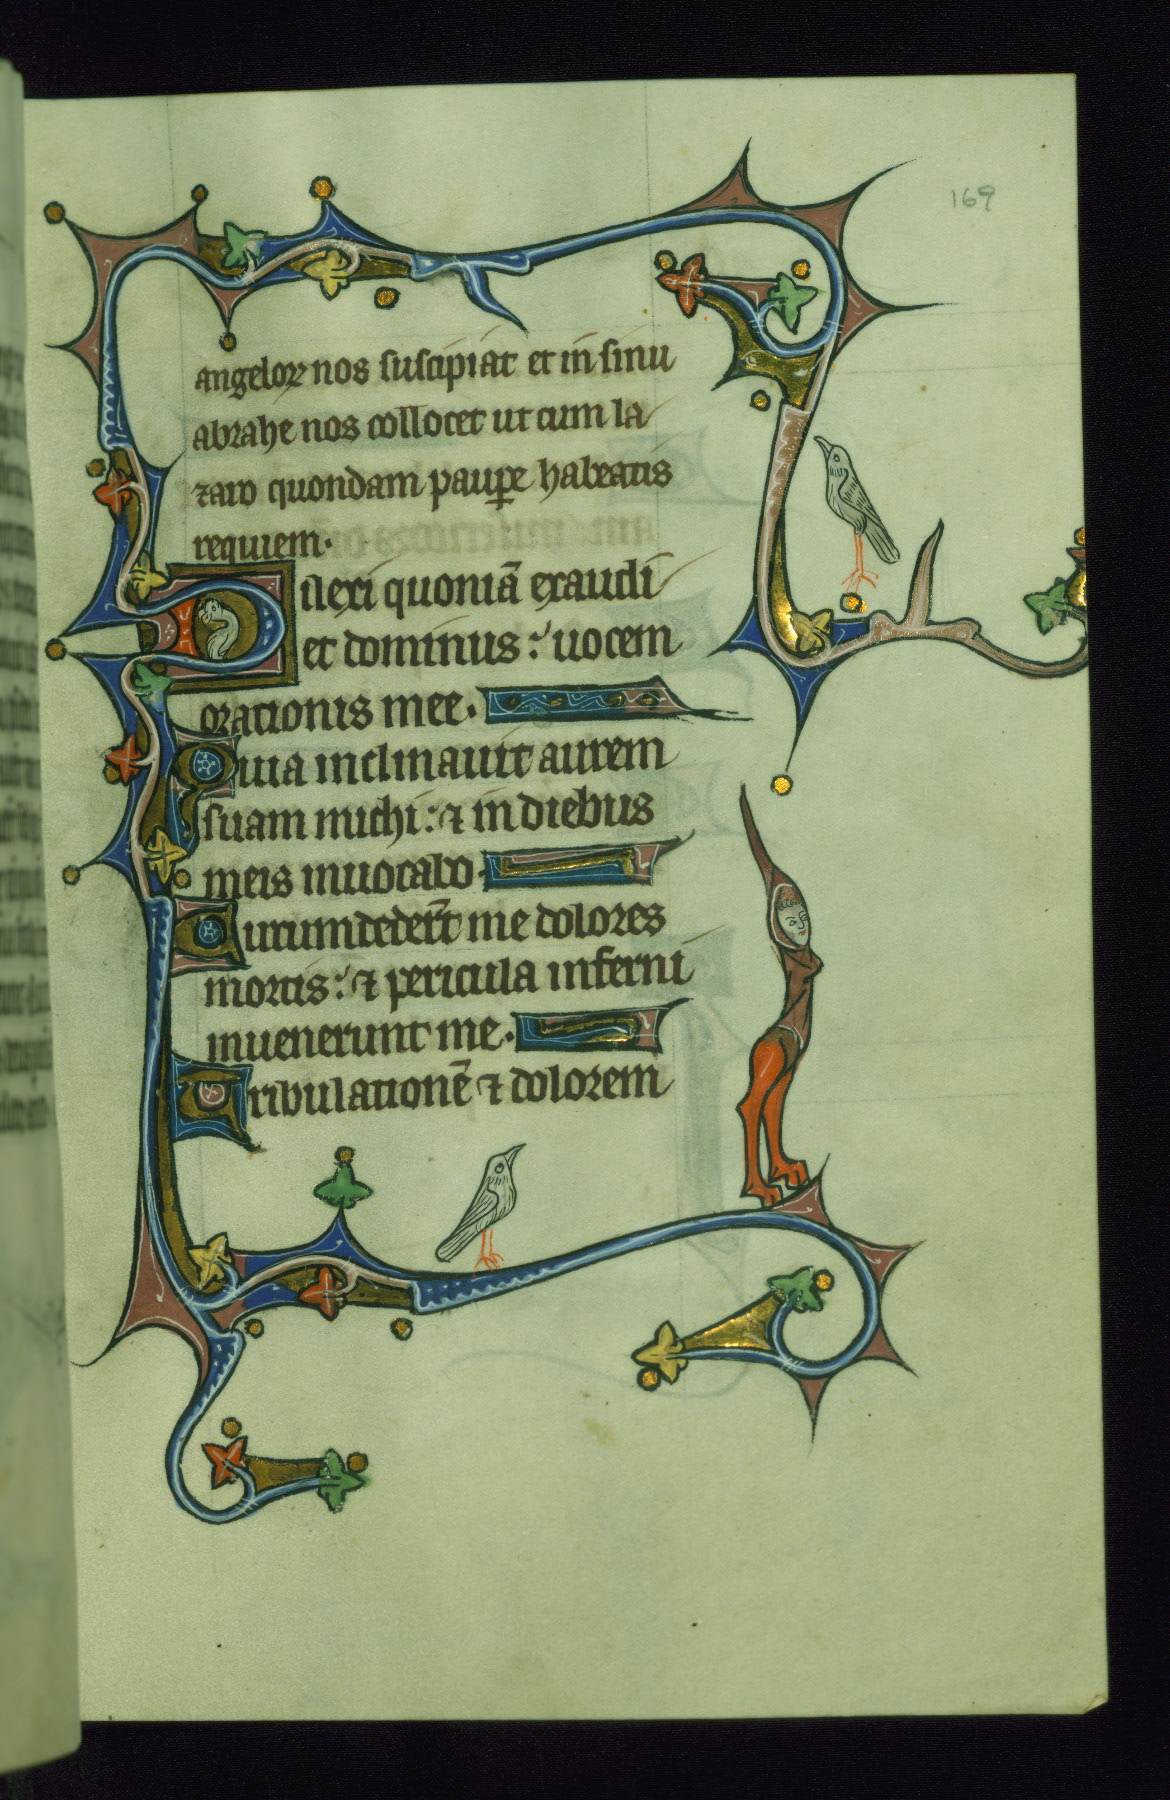 169
angeloꝝ nos suscipiat et in sinu
abrahe nos collocet ut cum la
zaro quondam paup̲e habeatis
requiem·
Dilexi quoniā exaudi
et dominus: uocem
orationis mee·
Quia inclinauit aurem
suam michi: ⁊ in diebus
meis inuocabo·
Circumdeder̄t me dolores
mortis: ⁊ pericula inferni
inuenerunt me·
Tribulationē ⁊ dolorem